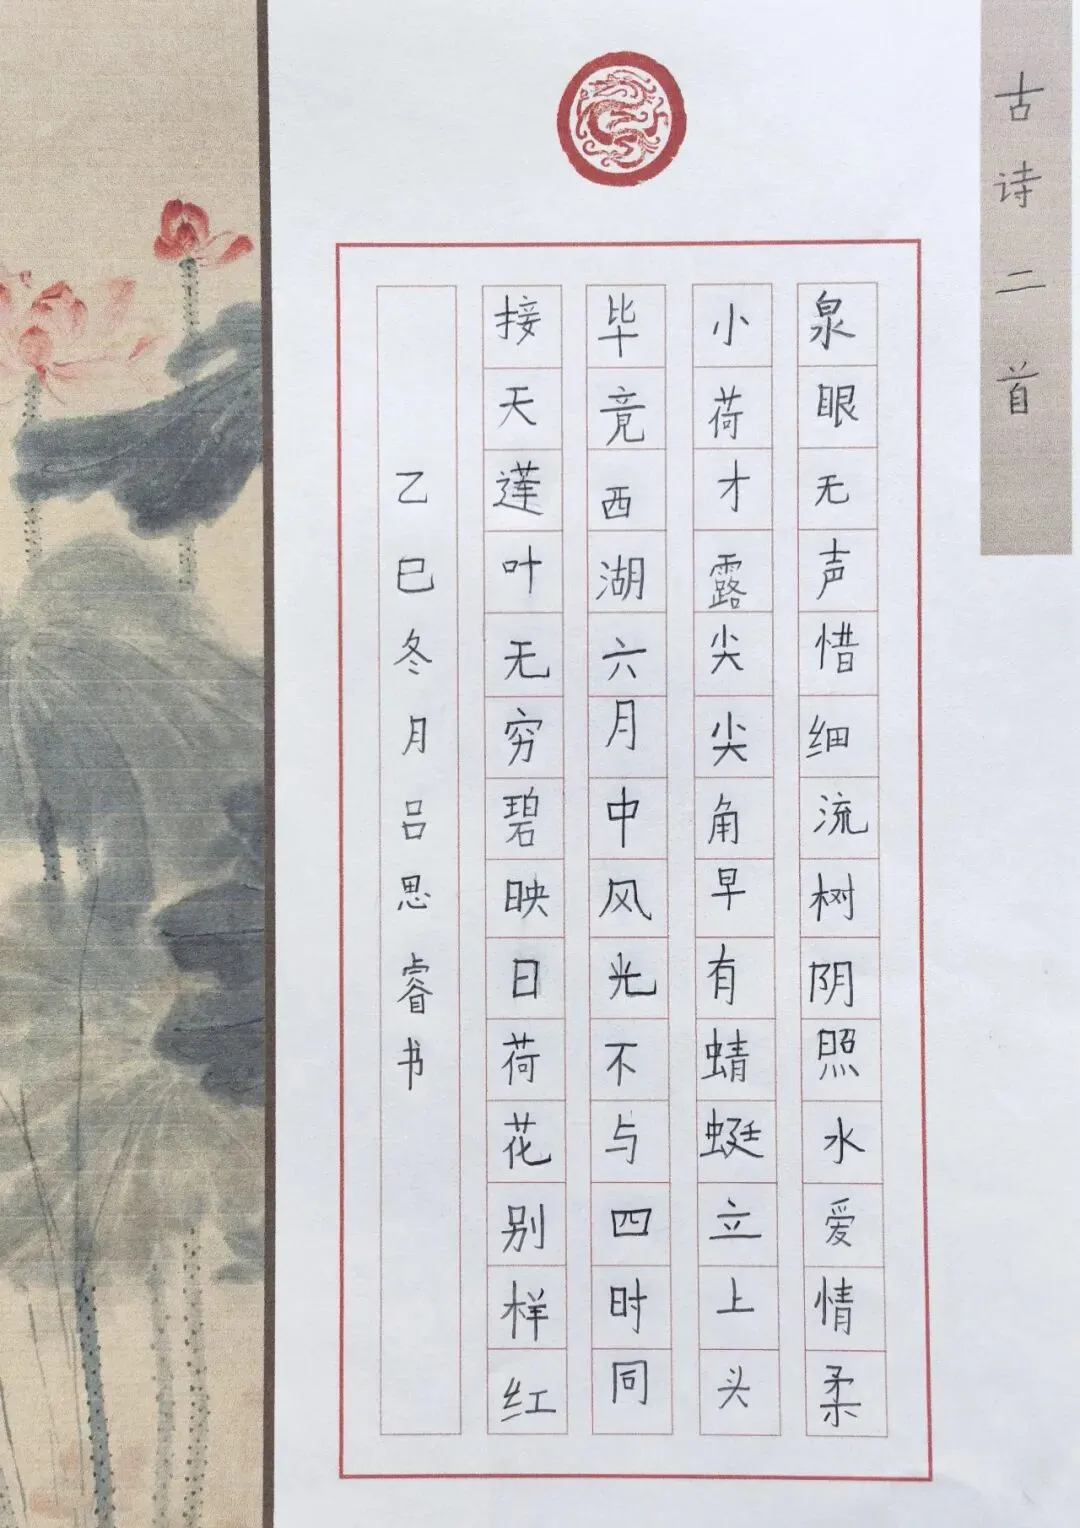 古诗二首
泉眼无声惜细流树阴照水爱情柔
小荷才露尖尖角早有蜻蜓立上头
毕竟西湖六月中风光不与四时同
接天莲叶无穷碧映日荷花别样红
乙巳冬月吕思睿书